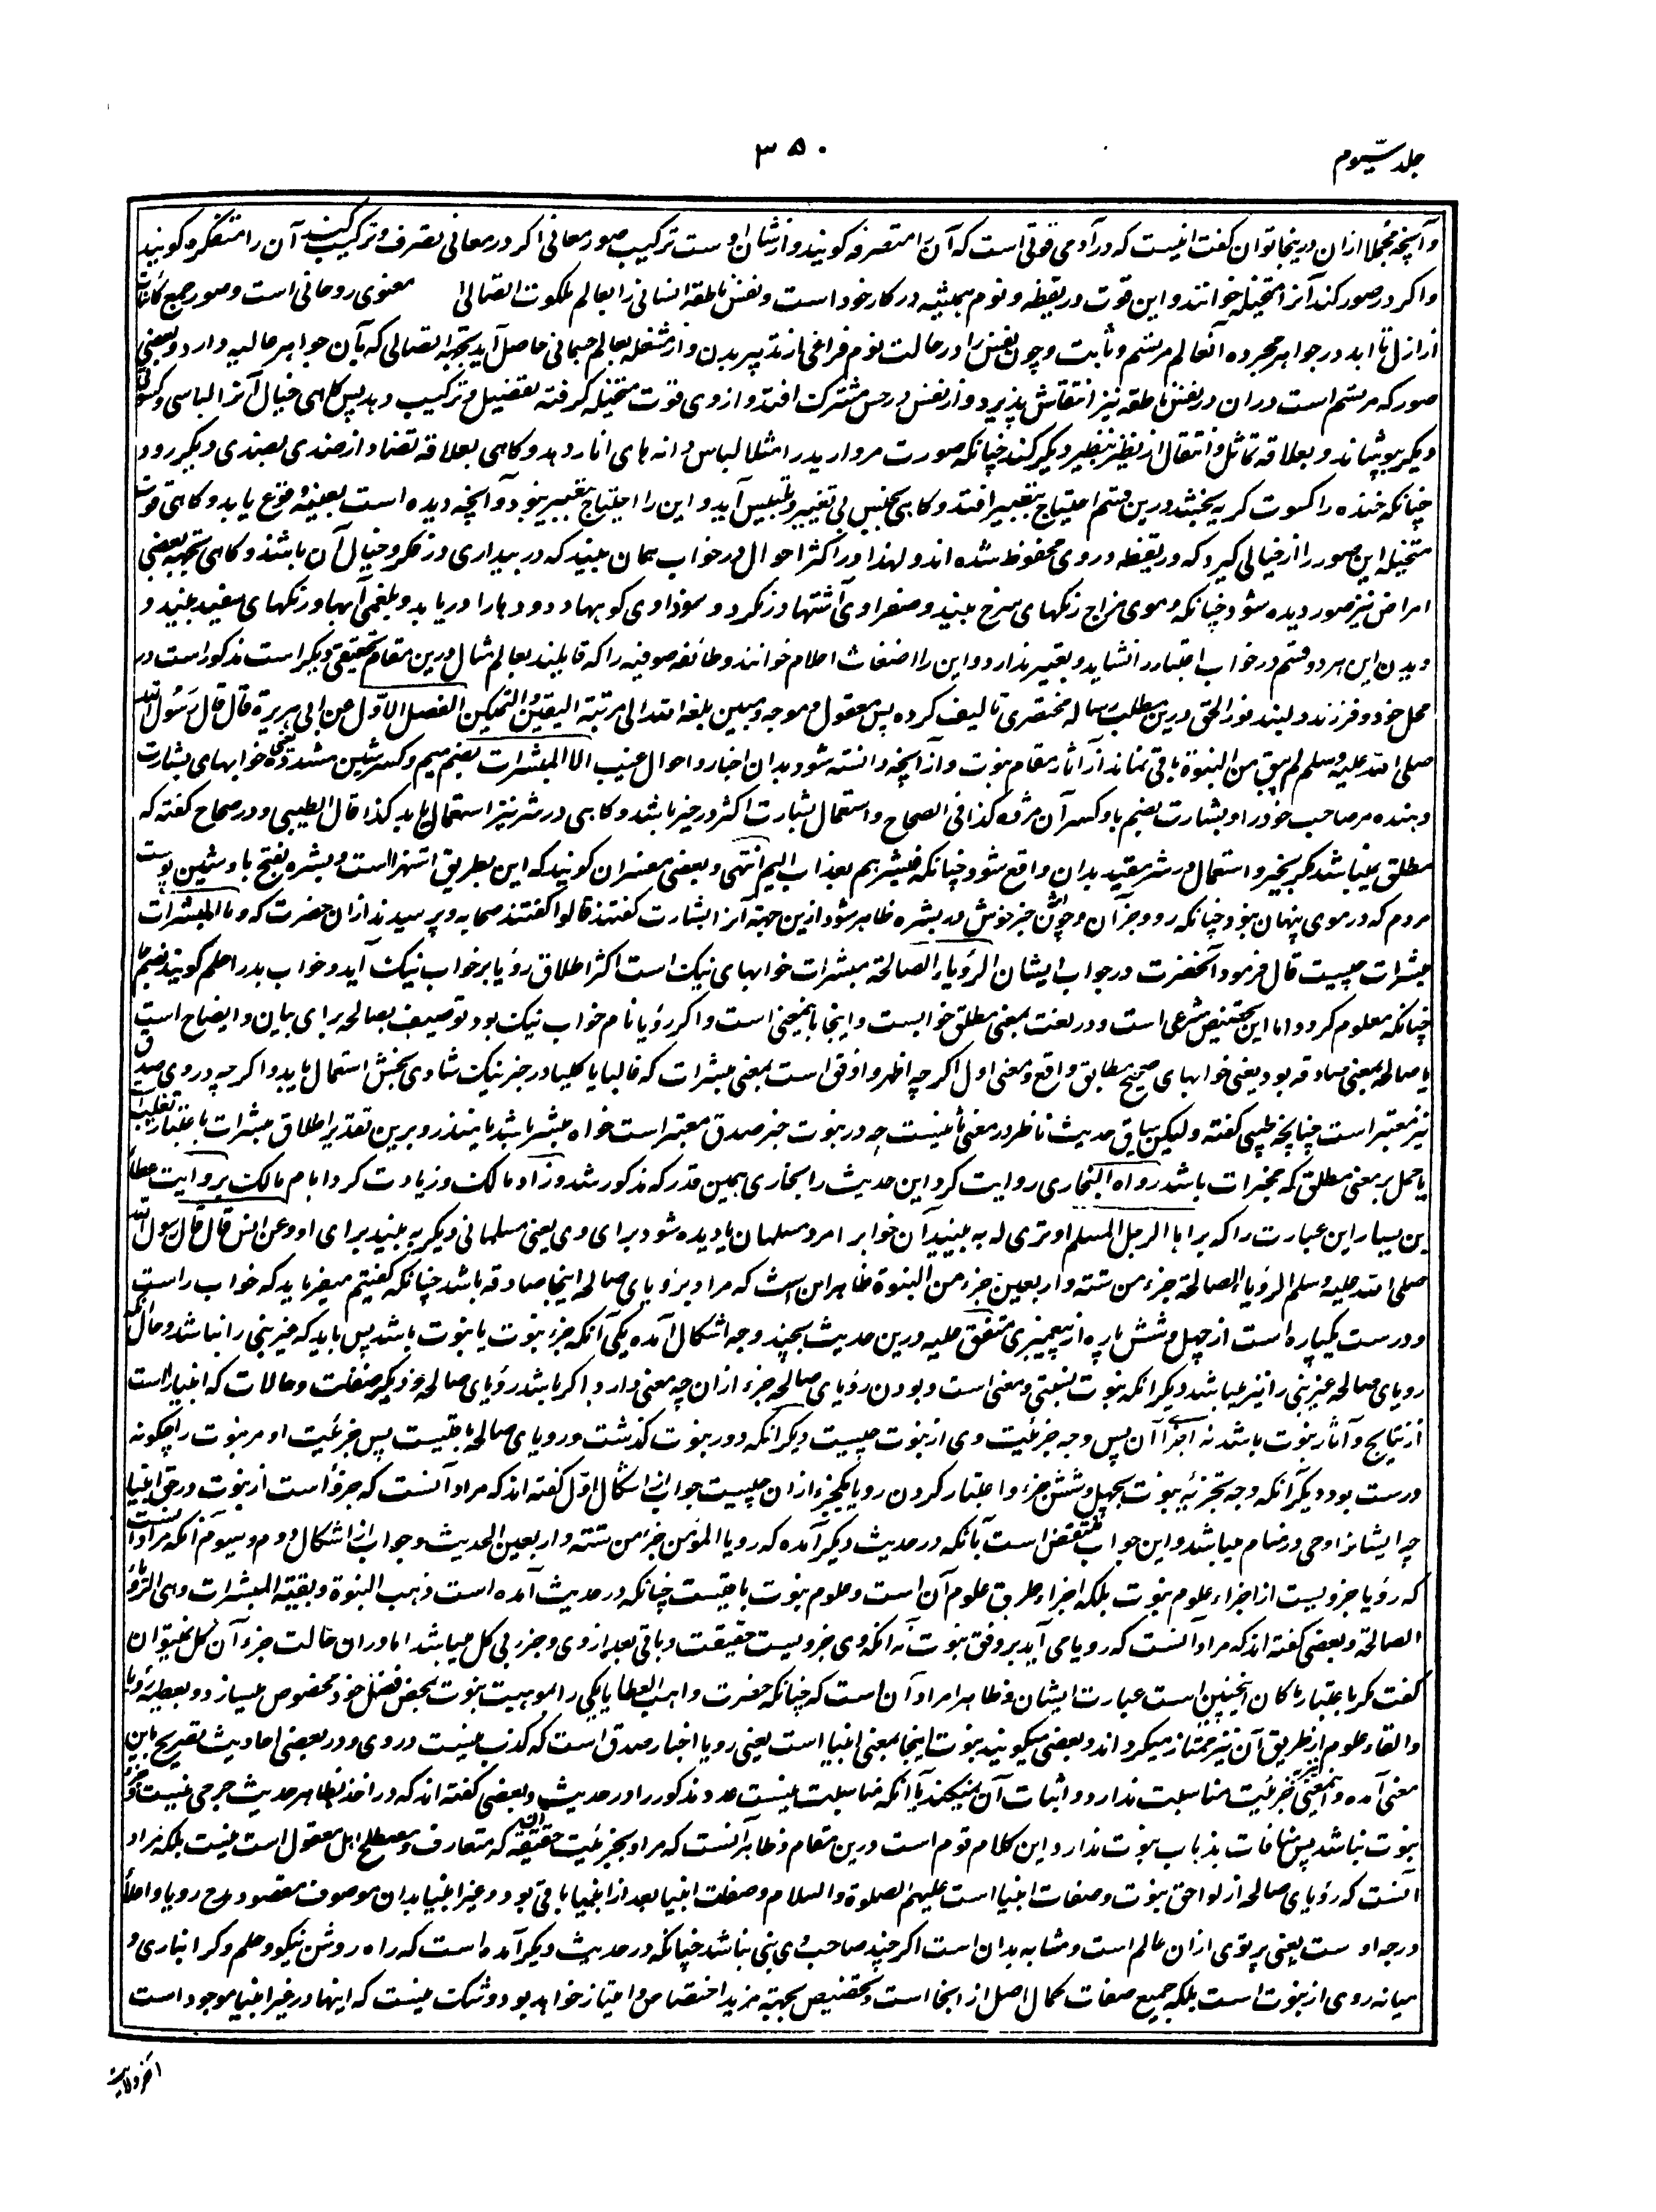 جلد سیّوم
۳۵۰
و آنچه مجملا ازان درینجا توان گفت اینست که در آدمی قوتی است که آن را متصرفه گویند و از شان اوست ترکیب صور معانی اگر در معانی تصرف و ترکیب کند آن را متفکره گویند
و اگر در صور کند آنرا متخیله خوانند و این قوت در یقظه و نوم همیشه در کار خود است و نفس ناطقه انسانی را بعالم ملکوت اتصالی معنوی روحانی است و صور جمیع کائنات
از ازل تا ابد در جواهر مجرده آنعالم مرتسم و ثابت و چون نفس را در حالت نوم فراغی از تدبیر بدن و از مشغله بعالم جسمانی حاصل آید بجهة اتصالی که بآن جواهر عالیه دارد بعضی
صور که مرتسم است دران در نفس ناطقه نیز انتقاش پذیرد و از نفس در حس مشترک افتد و از وی قوت متخیله گرفته تفضیل و ترکیب دهد پس گاهی خیال آنرا لباسی و کسوتی
دیگر بپوشاند و بعلاقه تماثل و انتقال از نظیر بنظیر دیگر کند چنانکه صورت مروارید را مثلا لباس دانه های انار دهد و گاهی بعلاقه تضاد از ضدی بضدی دیگر رود
چنانکه خنده را کسوت گریه بخشد درین قسم احتیاج بتعبیر افتد و گاهی بجنس بی تغییر و تلبیس آید و این را احتیاج بتعبیر نبود و آنچه دیده است بعینه وقوع یابد و گاهی قوت
متخیله این صور را از خیالی گیرد که در یقظه در وی محفوظ شده اند و لهذا در اکثر احوال در خواب همان بیند که در بیداری در فکر و خیال آن باشند و گاهی بجهة بعضی
امراض نیز صور دیده شود چنانکه دموی مزاج رنگهای سرخ بیند و صفراوی آتشها و زنگرد و سوداوی کوهها و دودها را و ریا بد و بلغمی آبها و رنگهای سفید بیند و
دیدن این هر دو قسم در خواب اعتبار را نشاید و تعبیر ندارد و این را اضغاث احلام خوانند و طائفه صوفیه را که قایلند بعالم مثال درین مقام تحقیقی دیگر است مذکور است در
محل خود و فرزند دلبند نور الحق درین مطلب رساله مختصری تالیف کرده پس معقول و موجه و مبین بلغه الله الی مرتبة الیقین و التمکین الفصل الاول عن ابی هریرة قال قال رسول الله
صلی الله علیه وسلم لم یبق من النبوة باقی نماند از آثار مقام نبوت و از آنچه دانسته شود بدان اخبار و احوال غیب الا المبشرات بضم میم و کسر شین مشدده یعنی خوابهای بشارت
دهنده مر صاحب خود را و بشارت بضم با و کسر آن مژده کذا فی الصحاح و استعمال بشارت اکثر در خیر باشد و گاهی در شر نیز استعمال یابد کذا قال الطیبی و در صحاح گفته که
مطلق نمیباشد مگر بخیر و استعمال در شر مقید بدان واقع شود چنانکه فبشرهم بعذاب الیم انتهی و بعضی مفسران گویند که این بطریق استهزاست و بشره بفتح با و شین پوست
مردم که در موی پنهان نبود چنانکه رو و جز آن و چون اثر خبر خوش در بشره ظاهر شود ازین جهة آنرا بشارت گفتند قالوا گفتند صحابه و پرسیدند ازان حضرت که و ما المبشرات
مبشرات چیست قال فرمود آنحضرت در جواب ایشان الرؤیا الصالحة مبشرات خوابهای نیک است اکثر اطلاق رؤیا بر خواب نیک آید و خواب بد را حلم گویند بضم حا
چنانکه معلوم گردد اما این تخصیص شرعی است و در لغت بمعنی مطلق خوابست و اینجا باینمعنی است و اگر رؤیا نام خواب نیک بود توصیف بصالحه برای بیان و ایضاح است
یا صالحه بمعنی صادقه بود یعنی خوابهای صحیح مطابق واقع و معنی اول اگر چه اظهر و اوفق است بمعنی مبشرات که غالبا یا کلیا در خبر نیک شادی بخش استعمال یابد و اگر چه در وی صدق
نیز معتبر است چنانچه طیبی گفته و لیکن سیاق حدیث ناظر در معنی ثانیست چه در نبوت خبر صدق معتبر است خواه مبشر باشد یا منذر و برین تقدیر اطلاق مبشرات باعتبار تغلیب است
یا حمل بر معنی مطلق که مخبرات باشد رواه البخاری روایت کرد این حدیث را بخاری همین قدر که مذکور شد و زاد مالک و زیادت کرد امام مالک بروایت عطاء
بن یسار این عبارت را که یراها الرجل المسلم او تری له به بیند آن خواب را مرد مسلمان یا دیده شود برای وی یعنی مسلمانی دیگر به بیند برای او و عن انس قال قال رسول الله
صلی الله علیه وسلم الرؤیا الصالحة جزء من ستة و اربعین جزء من النبوة ظاهر این است که مراد برؤیای صالحه اینجا صادقه باشد چنانکه گفتیم میفرماید که خواب راست
و درست یکپاره است از چهل و شش پاره از پیغمبری متفق علیه درین حدیث بچند وجه اشکال آمده یکی آنکه جزء نبوت یا نبوت باشد پس باید که غیر نبی را نباشد و حال آنکه
رویای صالحه غیر نبی را نیز میباشد دیگر آنکه نبوت نسبتی و معنی است و بودن رؤیای صالحه جزء ازان چه معنی دارد و اگر باشد رؤیای صالحه و دیگر صفات و حالات که انبیا راست
از نتایج و آثار نبوت باشد نه اجزاء آن پس وجه جزئیت وی از نبوت چیست دیگر آنکه دور نبوت گذشت و رویای صالحه باقیست پس جزئیت او مر نبوت را چگونه
درست بود و دیگر آنکه وجه تجزئه نبوت بچهل و شش جزء و اعتبار کردن رویا یکجزء ازان چیست جواب از اشکال اول گفته اند که مراد آنست که جزو است از نبوت در حق انبیا
چه ایشانرا وحی در منام میباشد و این جواب منتقض است بآنکه در حدیث دیگر آمده که رویا المؤمن جزء من ستة و اربعین الحدیث و جواب از اشکال دوم و سیوم آنکه مراد آنست
که رؤیا جزویست از اجزاء علوم نبوت بلکه اجزاء طرق علوم آن است و علوم نبوت باقیست چنانکه در حدیث آمده است ذهب النبوة و بقیة المبشرات و هی الرؤیا
الصالحة و بعضی گفته اند که مراد آنست که رویا می آید بر وفق نبوت نه آنکه وی جزویست حقیقت و باقی بعد از وی و جزء بی کل میباشد اما دران حالت جزء آن کل نمیتوان
گفت مگر باعتبار ما کان اینچنین است عبارت ایشان و ظاهرا مراد آن است که چنانکه حضرت واهب العطایا یکی را بموهبت نبوت بمحض فضل خود مخصوص میسازد و بعطیه رؤیا
و القاء علوم از طریق آن نیز ممتاز میگرداند و بعضی میگویند نبوت اینجا بمعنی انبیا است یعنی رویا اخبار صدق است که کذب نیست در وی و در بعضی احادیث تصریح باین
معنی آمده و اینمعنی بجزئیت مناسبت ندارد و اثبات آن نمیکند یا آنکه مناسبت نیست عدد مذکور را در حدیث و بعضی گفته اند که در اخذ بظاهر حدیث حرجی نیست و جزء
نبوت نباشد پس منافات بذهاب نبوت ندارد این کلام قوم است درین مقام و ظاهر آنست که مراد بجزئیت حقیقیه که متعارف و مصطلح اهل معقول است نیست بلکه مراد
آنست که رؤیای صالحه از لواحق نبوت و صفات انبیا است علیهم الصلوة والسلام و صفات انبیا بعد از انبیا باقی بود و غیر انبیا بدان موصوف مقصود مدح رویا و اعلاء
درجه اوست یعنی پرتوی ازان عالم است و مشابه بدان است اگر چند صاحب وی نبی نباشد چنانکه در حدیث دیگر آمده است که راه روشن نیکو و حلم و گرانباری و
میانه روی از نبوت است بلکه جمیع صفات کمال اصل از انجا است و تخصیص بجهة مزید اختصاص و امتیاز خواهد بود و شک نیست که اینها در غیر انبیا موجود است